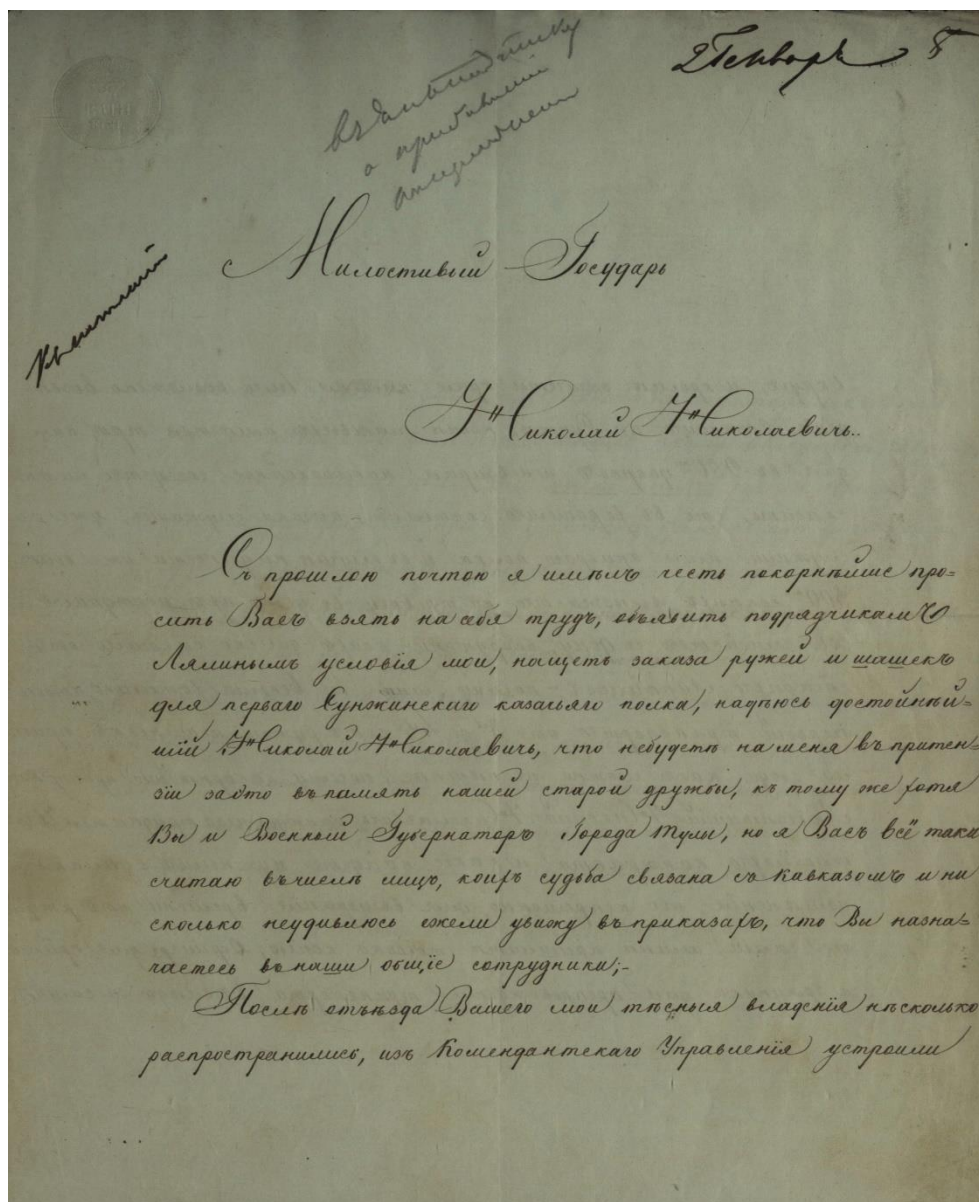 2 Генварь
Милостивый Государь
Николай Николаевичь.
Съ прошлою почтою я имѣлъ честь покорнѣйше про=
сить Васъ взять на себя трудъ, объявить подрядчикамъ
Лялинымъ условія мои, нащетъ заказа ружей и шашекъ
для перваго Сунжинскаго казачьяго полка, надѣюсь достойнѣй=
шій Николай Николаевичь, что небудете на меня въ притен=
зіи заэто въ память нашей старой дружбы, къ тому же хотя
Вы и Военный Губернаторъ Города Тулы, но я Васъ всё таки
считаю въ числѣ лицъ, коихъ судьба связана съ Кавказомъ и ни
сколько неудивлюсь ежели увижу въ приказахъ, что Вы назна=
чаетесь въ наши общіе сотрудники;-
Послѣ отъѣзда Вашего мои тѣсныя владенія нѣсколько
распространились, изъ Комендантскаго Управленія устроили